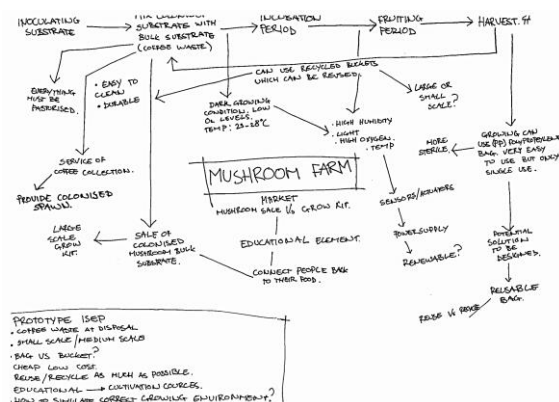 INOCULATING
SUBSTRATE
MIX COLONISED
SUBSTRATE WITH
BULK SUBSTRATE
(COFFEE WASTE)
INCUBATION
PERIOD
FRUITING
PERIOD
HARVEST.
EVERYTHING
MUST BE
PASTURISED.
• EASY TO
CLEAN
• DURABLE
CAN USE RECYCLED BUCKETS
WHICH CAN BE REUSED.
DARK GROWING
CONDITION. LOW
O2 LEVELS.
TEMP:
• HIGH HUMIDITY
• LIGHT
• HIGH OXYGEN.
• TEMP
LARGE OR
SMALL
SCALE?
MORE
STERILE.
GROWING CAN
USE (PP) POLYPROPYLENE
BAG. VERY EASY
TO USE BUT ONLY
SINGLE USE.
SERVICE OF
COFFEE COLLECTION.
PROVIDE COLONISED
SPAWN.
MUSHROOM FARM
MARKET
MUSHROOM SALE VS GROW KIT.
EDUCATIONAL ELEMENT.
CONNECT PEOPLE BACK
TO THEIR FOOD.
LARGE
SCALE
GROW
KIT.
SALE OF
COLONISED
MUSHROOM BULK
SUBSTRATE.
SENSORS/ACTUATORS
POWER SUPPLY
RENEWABLE?
POTENTIAL
SOLUTION
TO BE
DESIGNED.
REUSABLE
BAG.
REUSE VS
PROTOTYPE ISEP
• COFFEE WASTE AT DISPOSAL
• SMALL SCALE/MEDIUM SCALE
• BAG VS BUCKET?
CHEAP LOW COST.
REUSE/RECYCLE AS MUCH AS POSSIBLE.
EDUCATIONAL → CULTIVATION COURCES.
• HOW TO SIMULATE CORRECT GROWING ENVIRONMENT?